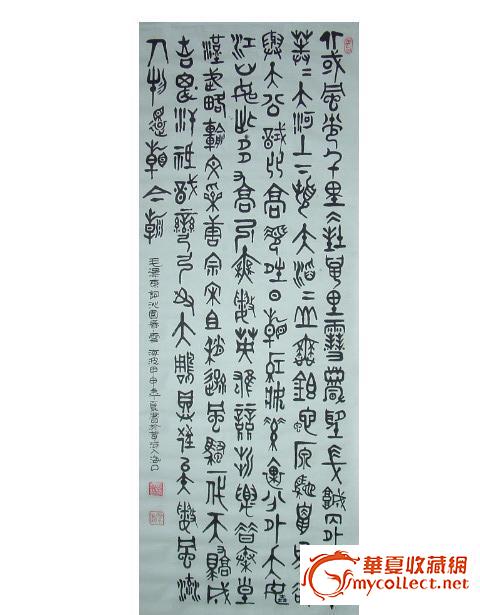 北國風光千里冰封萬里雪飄望長城內外
莽〻大河上下頓失滔〻山舞銀蛇原馳
與天公試比高須晴日看紅妝素裹分外
江山如此多嬌引無數英雄競折腰惜秦皇
漢武略輸文采唐宗宋且稍遜風騷一代天驕成
吉思汗祗識彎弓射大鵰俱往矣數風流
人物還看今朝
毛澤東詞沁園春雪 海波甲申年夏書於黃河入海口
華夏收藏網
mycollect.net